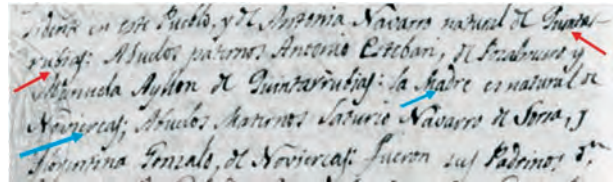 sidente en este Pueblo, y de Antonia Navarro natural de Quintar-
rubias: Abuelos paternos Antonio Esteban, de
Manuela Ayllon de Quintarrubias: la Madre es natural de
Noviercas; Abuelos Maternos Saturio Navarro de Soria, y
Florentina Gonzalo, de Noviercas: fueron sus Padrinos Dn.